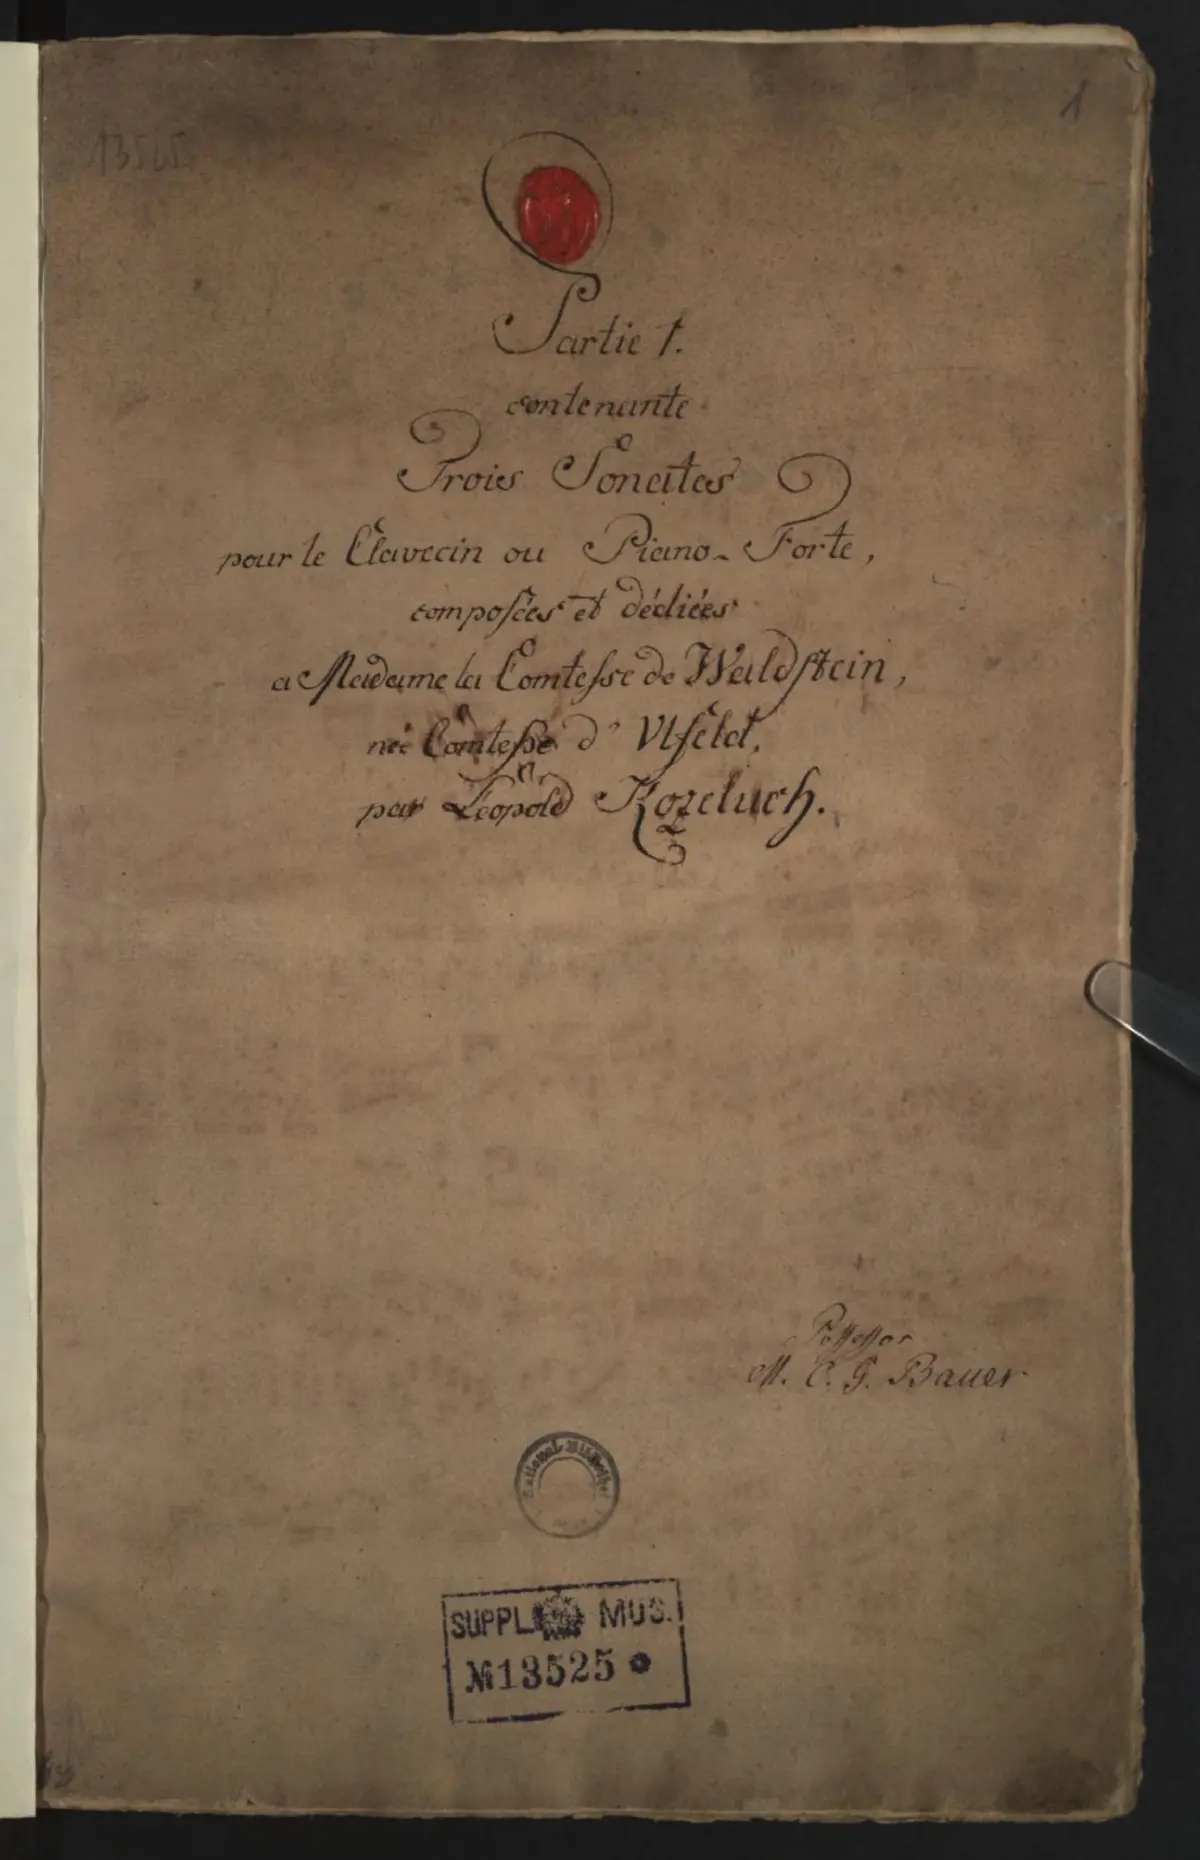 1
13525
Partie 1.
contenante
Trois Sonates
pour le Clavecin ou Piano-Forte,
composées et dédiées
a Madame la Comtesse de Waldstein,
née Comtesse d'Ulfeld,
par Léopold Kozeluch.
Possessor
M. C. G. Bauer
National Bibliothek
SUPPL. MUS.
№13525